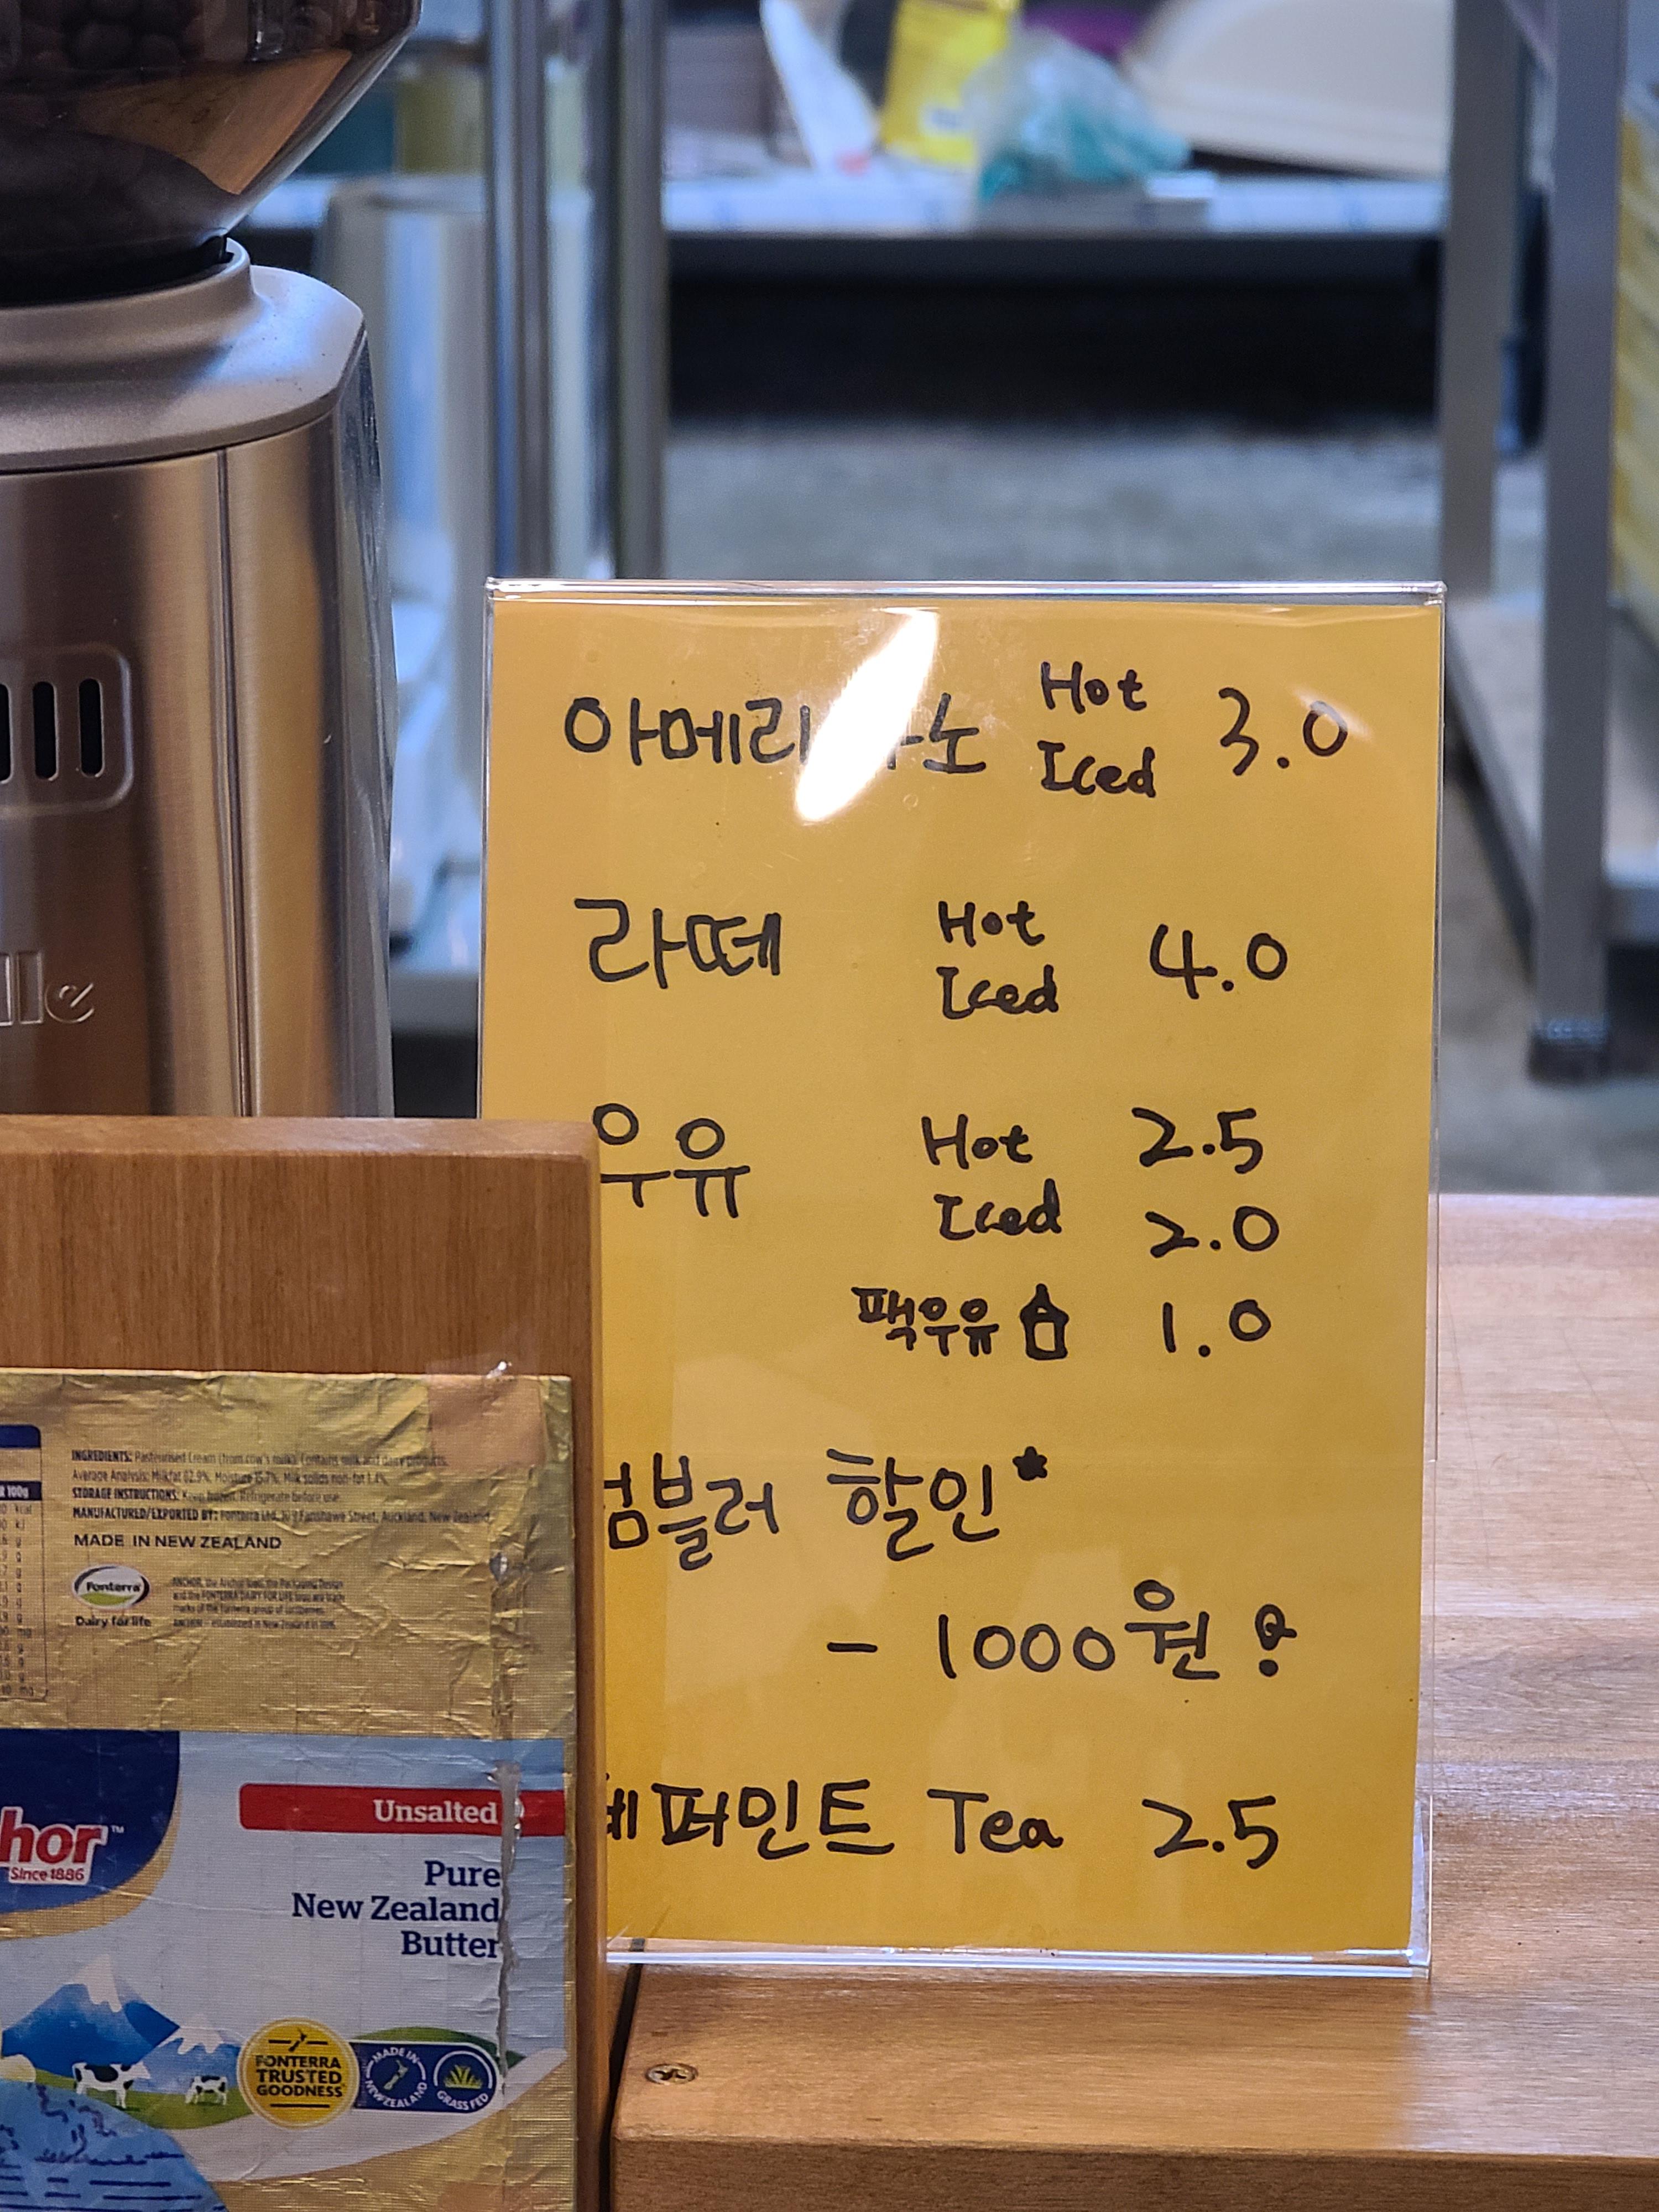 아메리카노 Hot Iced 3.0
라떼 Hot Iced 4.0
우유 Hot 2.5
Iced 2.0
팩우유 1.0
텀블러 할인*
- 1000원!
페퍼민트 Tea 2.5
INGREDIENTS: Pasteurised Cream (from cow's milk). Contains milk and dairy products.
Average Analysis: Milkfat 82.9%, Moisture 15.7%, Milk solids non-fat 1.4%.
STORAGE INSTRUCTIONS: Keep frozen. Refrigerate before use.
MANUFACTURED/EXPORTED BY: Fonterra Ltd, Fanshawe Street, Auckland, New Zealand
MADE IN NEW ZEALAND
Fonterra
Dairy for life
hor™
Since 1886
Unsalted
Pure
New Zealand
Butter
FONTERRA
TRUSTED
GOODNESS
MADE IN
NEW ZEALAND
GRASS FED